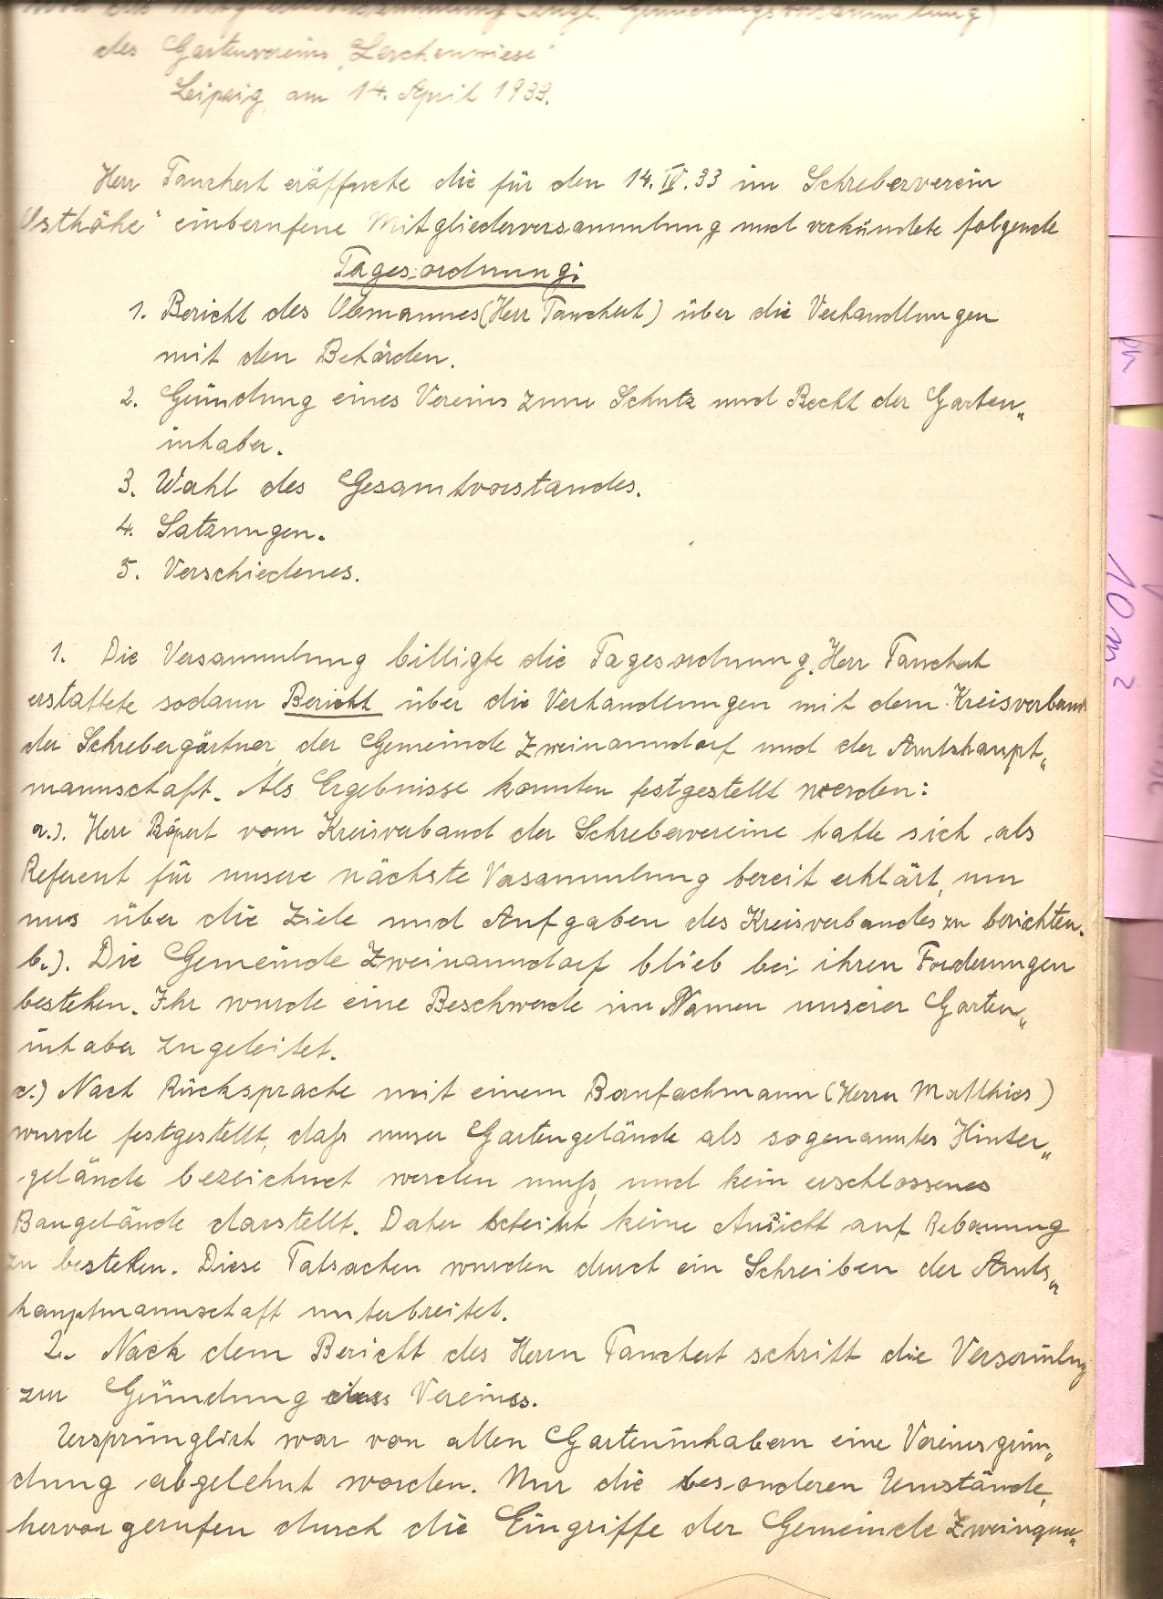 des Gartenvereins „Lerchenwiese“
Leipzig, am 14. April 1933.
Herr Tauchert eröffnete die für den 14. IV. 33 im Schreberverein
Osthöhe“ einberufene Mitgliederversammlung und verkündete folgende
Tagesordnung:
1. Bericht des Obmannes (Herr Tauchert) über die Verhandlungen
mit den Behörden.
2. Gründung eines Vereins zum Schutz und Recht der Garten„
inhaber.
3. Wahl des Gesamtvorstandes.
4. Satzungen.
5. Verschiedenes.
1. Die Versammlung billigte die Tagesordnung. Herr Tauchert
erstattete sodann Bericht über die Verhandlungen mit dem Kreisverband
der Schrebergärtner, der Gemeinde Zweinaundorf und der Amtshaupt„
mannschaft. Als Ergebnisse konnten festgestellt werden:
a.). Herr vom Kreisverband der Schrebervereine hatte sich als
Referent für unsere nächste Versammlung bereit erklärt, um
uns über die Ziele und Aufgaben des Kreisverbandes zu berichten.
b.). Die Gemeinde Zweinaundorf blieb bei ihren Forderungen
bestehen. Ihr wurde eine Beschwerde im Namen unserer Garten„
inhaber zugeleitet.
c.) Nach Rücksprache mit einem Baufachmann (Herrn Matthies)
wurde festgestellt, daß unser Gartengelände als sogenanntes Hinter„
gelände bezeichnet werden muß, und kein erschlossenes
Baugelände darstellt. Daher scheint keine Aussicht auf Bebauung
zu bestehen. Diese Tatsachen wurden durch ein Schreiben der Amts„
hauptmannschaft unterbreitet.
2. Nach dem Bericht des Herrn Tauchert schritt die Versammlung
zur Gründung des Vereines.
Ursprünglich war von allen Garteninhabern eine Vereinsgrün„
dung abgelehnt worden. Nur die besonderen Umstände,
hervorgerufen durch die Eingriffe der Gemeinde Zweinaun„
10 m²